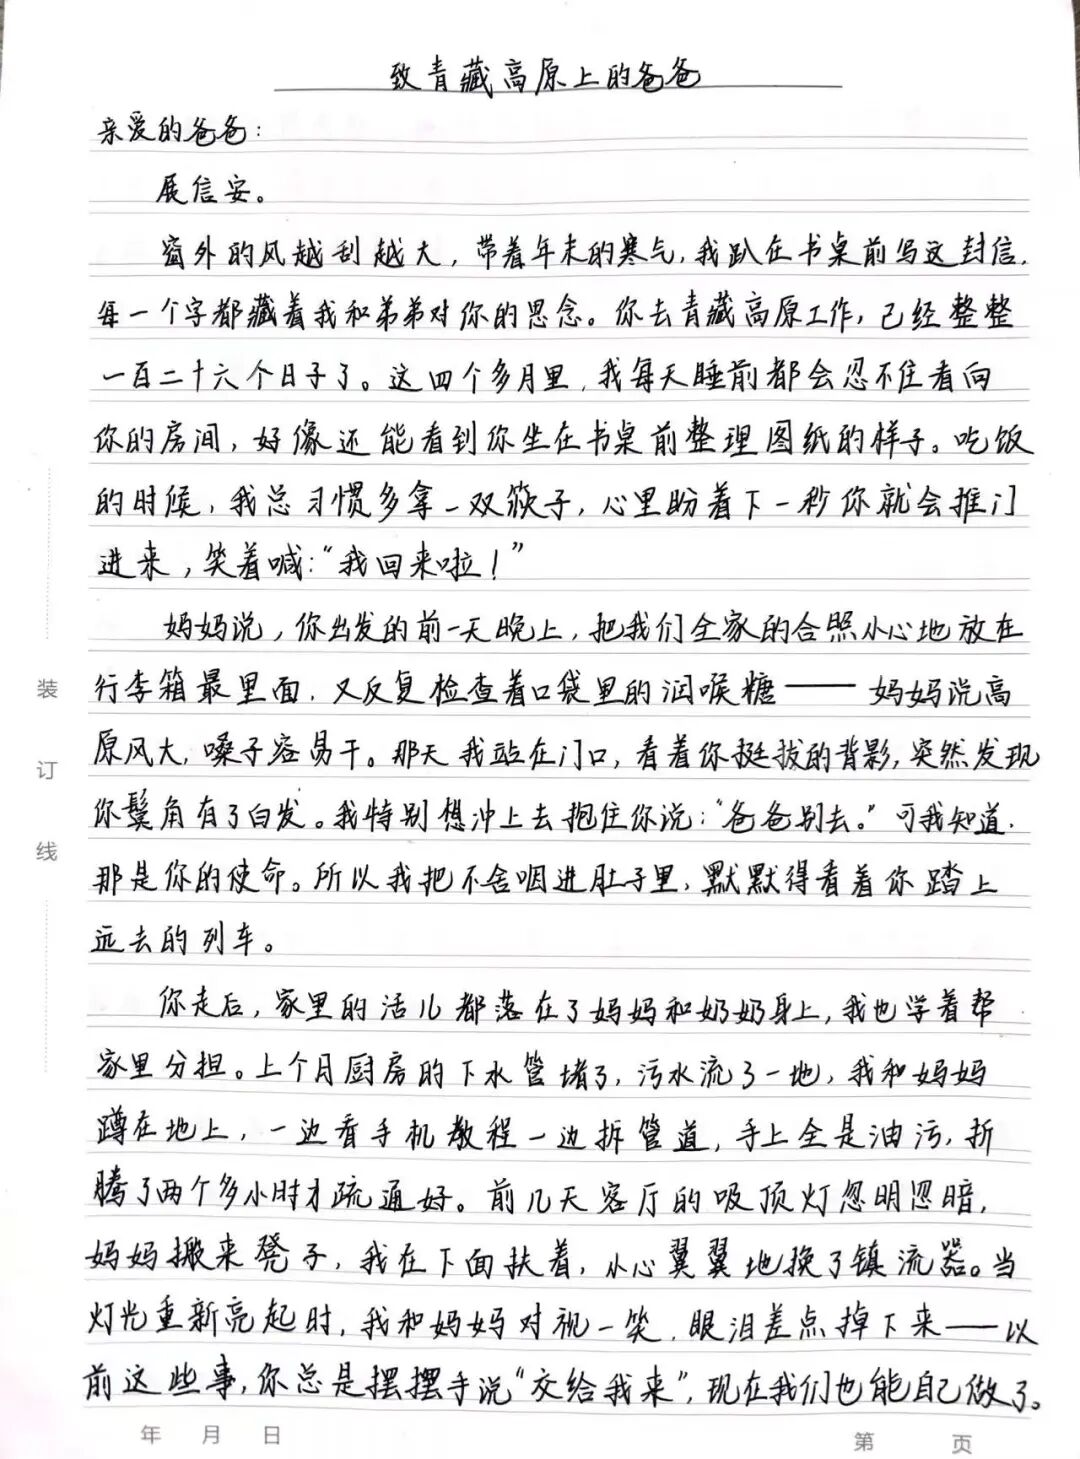 致青藏高原上的爸爸
亲爱的爸爸：
展信安。
窗外的风越刮越大，带着年末的寒气，我趴在书桌前写这封信，
每一个字都藏着我和弟弟对你的思念。你去青藏高原工作，已经整整
一百二十六个日子了。这四个多月里，我每天睡前都会忍不住看向
你的房间，好像还能看到你坐在书桌前整理图纸的样子。吃饭
的时候，我总习惯多拿一双筷子，心里盼着下一秒你就会推门
进来，笑着喊：“我回来啦！”
妈妈说，你出发的前一天晚上，把我们全家的合照小心地放在
行李箱最里面，又反复检查着口袋里的润喉糖——妈妈说高
原风大，嗓子容易干。那天我站在门口，看着你挺拔的背影，突然发现
你鬓角有了白发。我特别想冲上去抱住你说：“爸爸别去。”可我知道，
那是你的使命。所以我把不舍咽进肚子里，默默得看着你踏上
远去的列车。
你走后，家里的活儿都落在了妈妈和奶奶身上，我也学着帮
家里分担。上个月厨房的下水管堵了，污水流了一地，我和妈妈
蹲在地上，一边看手机教程一边拆管道，手上全是油污，折
腾了两个多小时才疏通好。前几天客厅的吸顶灯忽明忽暗，
妈妈搬来凳子，我在下面扶着，小心翼翼地换了镇流器。当
灯光重新亮起时，我和妈妈对视一笑，眼泪差点掉下来——以
前这些事，你总是摆摆手说“交给我来”，现在我们也能自己做了。
装
订
线
年 月 日
第 页